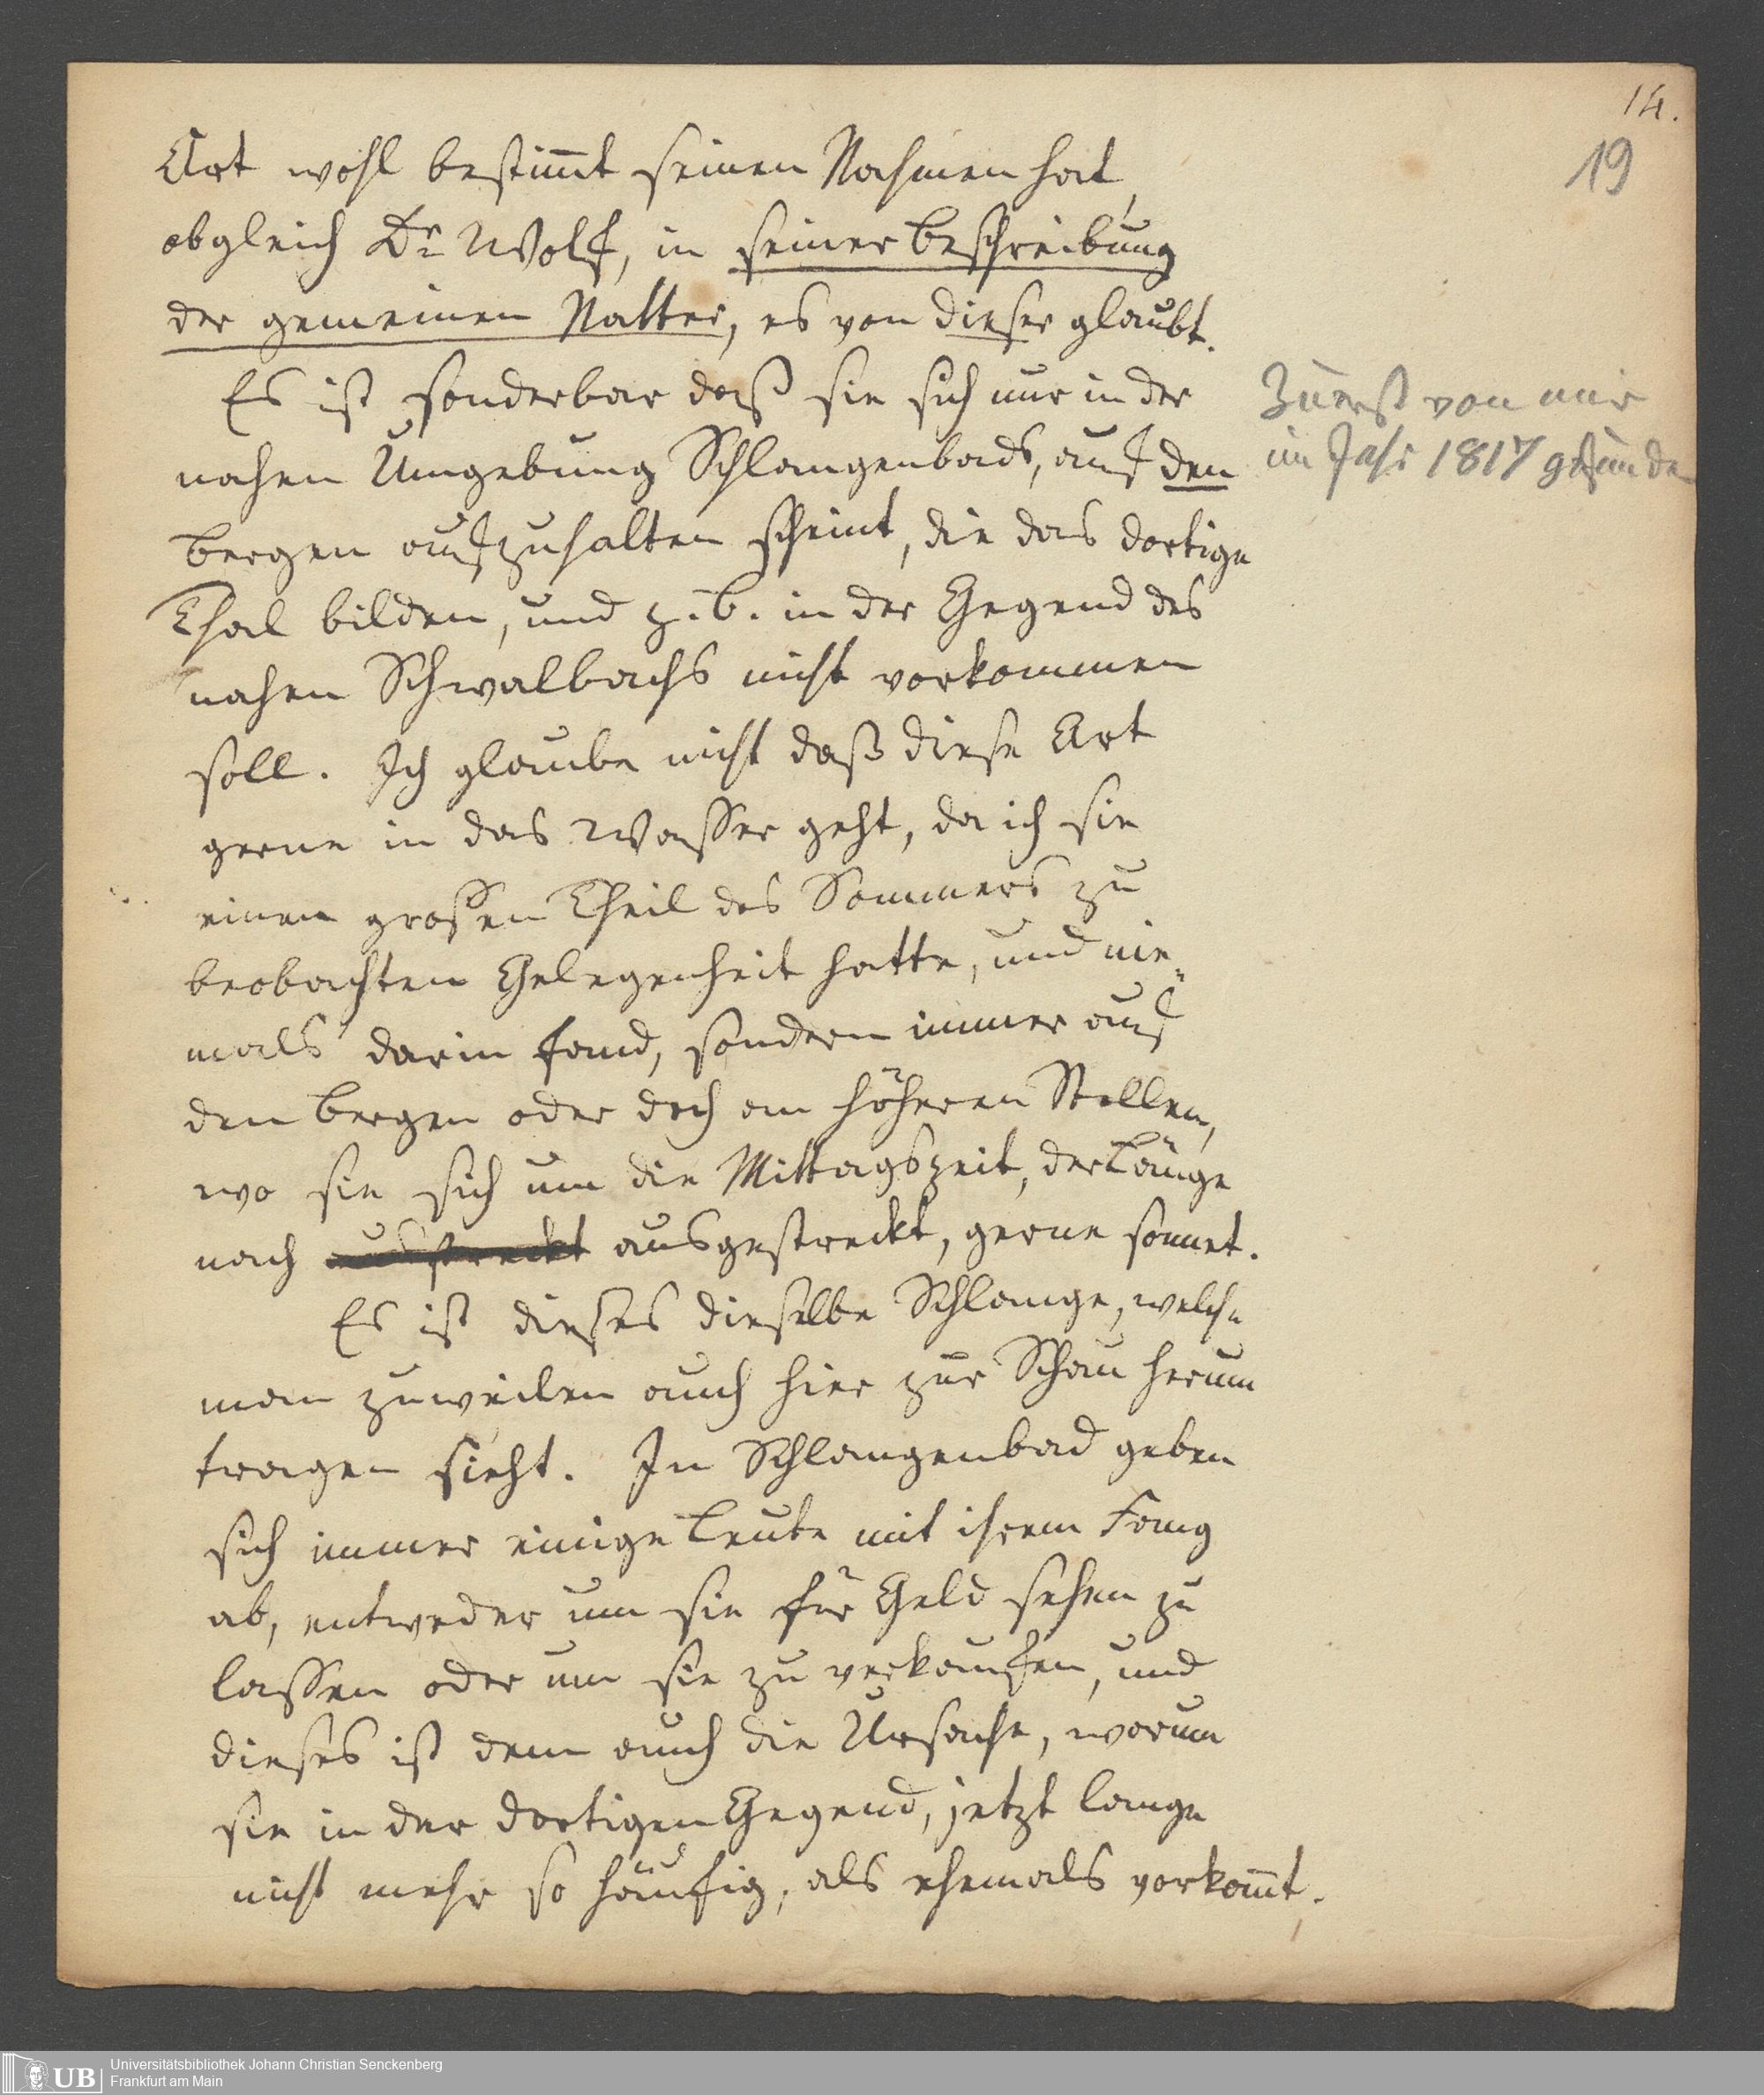 14.
19
Art wohl bestim̄t seinen Nahmen hat,
obgleich Dr. Wolf, in seiner Beschreibung
der gemeinen Natter, es von dieser glaubt.
Es ist sonderbar daß sie sich nur in der
nahen Umgebung Schlangenbads, auf den
Bergen aufzuhalten scheint, die das dortige
Thal bilden, und z. B. in der Gegend des
nahen Schwalbachs nicht vorkommen
soll. Ich glaube nicht daß diese Art
gerne in das Wasser geht, da ich sie
einen grosen Theil des Sommers zu
beobachten Gelegenheit hatte, und nie„
mals darin fand, sondern immer auf
den Bergen oder doch an höheren Stellen,
wo sie sich um die Mittagszeit, der Länge
nach ausstreckt ausgestreckt, gerne sonnet.
Es ist dieses dieselbe Schlange, welche
man zuweilen auch hier zur Schau herum
tragen sieht. In Schlangenbad geben
sich immer einige Leute mit ihrem Fang
ab, entweder um sie für Geld sehen zu
lassen oder um sie zu verkaufen, und
dieses ist denn auch die Ursache, warum
sie in der dortigen Gegend, jetzt lange
nicht mehr so häufig, als ehemals vorkom̄t.
Zuerst von mir
im Jahr 1817 gefunden
UB
Universitätsbibliothek Johann Christian Senckenberg
Frankfurt am Main